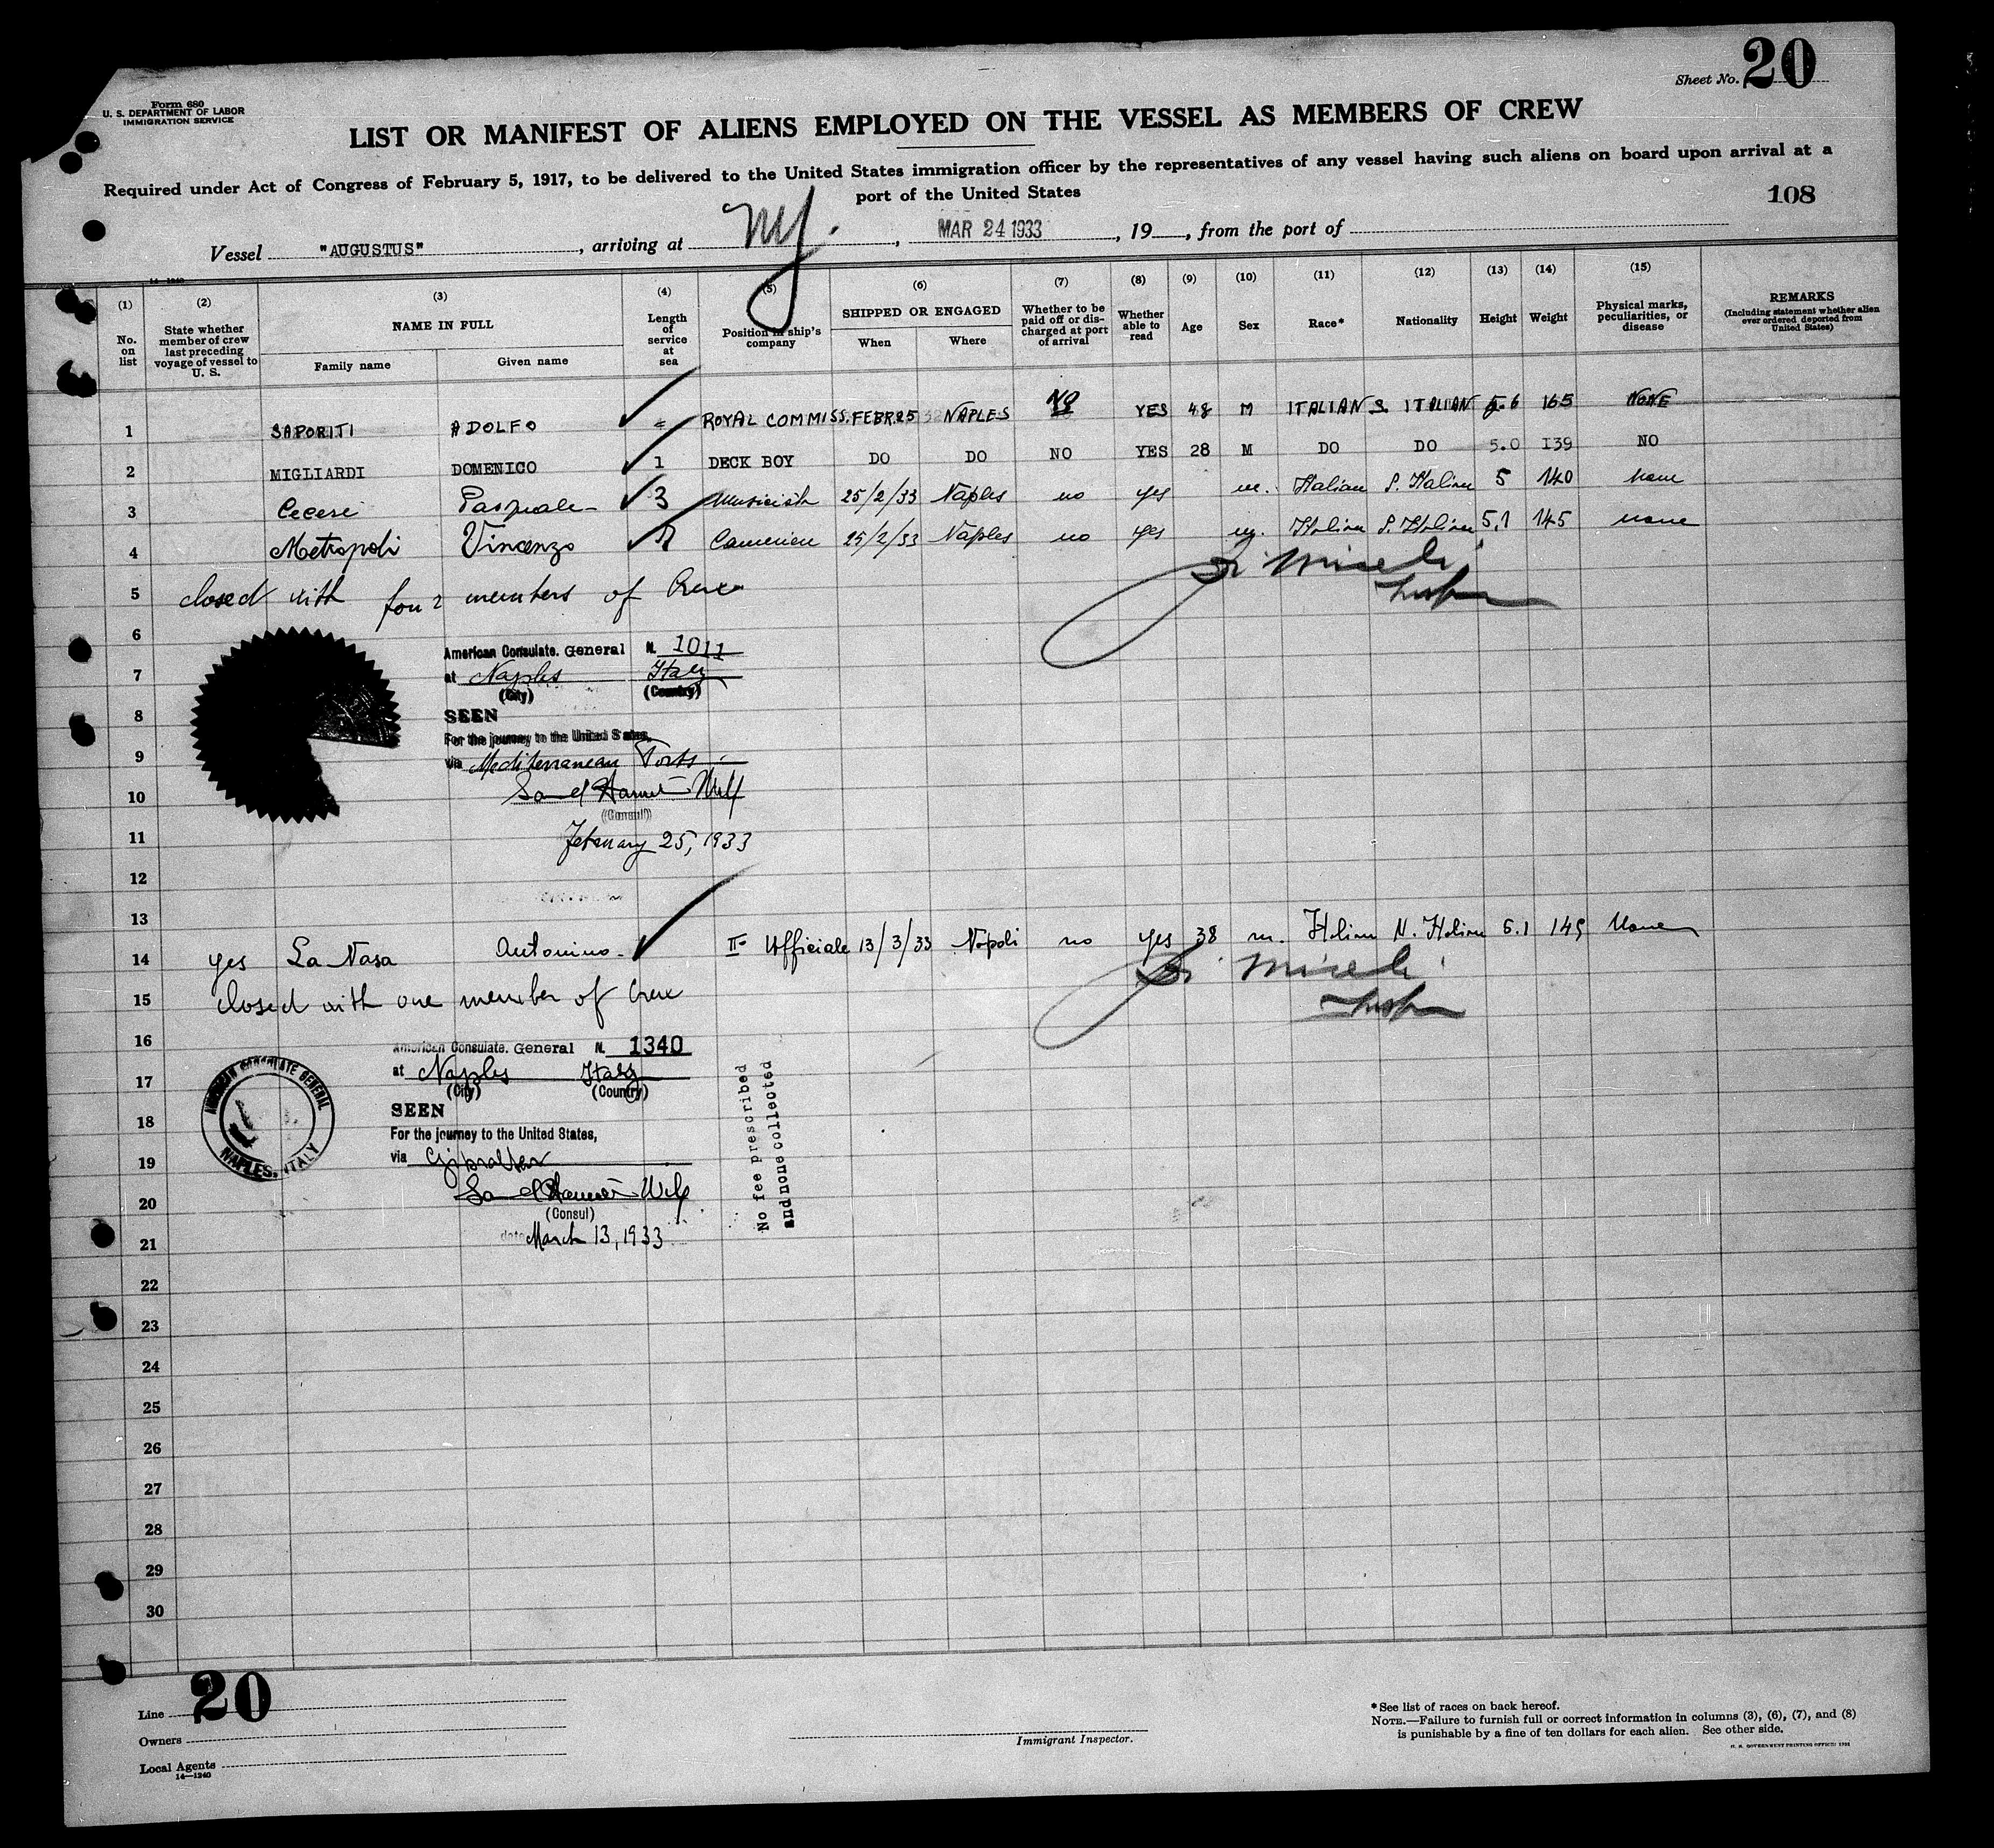 Sheet No. 20
Form 680
U. S. DEPARTMENT OF LABOR
IMMIGRATION SERVICE
LIST OR MANIFEST OF ALIENS EMPLOYED ON THE VESSEL AS MEMBERS OF CREW
Required under Act of Congress of February 5, 1917, to be delivered to the United States immigration officer by the representatives of any vessel having such aliens on board upon arrival at a
port of the United States
108
Vessel "AUGUSTUS", arriving at NY., MAR 24 1933, 19, from the port of
14—1240
(1) (2) (3) (4) (5) (6) (7) (8) (9) (10) (11) (12) (13) (14) (15)
No. on list
State whether member of crew last preceding voyage of vessel to U. S.
NAME IN FULL
Family name
Given name
Length of service at sea
Position in ship's company
SHIPPED OR ENGAGED
When
Where
Whether to be paid off or discharged at port of arrival
Whether able to read
Age
Sex
Race*
Nationality
Height
Weight
Physical marks, peculiarities, or disease
REMARKS
(Including statement whether alien ever ordered deported from United States)
1 SAPORITI ADOLFO ROYAL COMMISS. FEBR. 25 NAPLES NO YES 48 M ITALIAN S. ITALIAN 5.6 165 NONE
2 MIGLIARDI DOMENICO 1 DECK BOY DO DO NO YES 28 M DO DO 5.0 139 NO
3 Ceceri Pasquale 3 25/2/33 Naples no yes m. Italian S. Italian 5 140 none
4 Metropoli Vincenzo 25/2/33 Naples no yes m. Italian S. Italian 5.1 145 none
5 closed with four members of Crew
6
American Consulate. General N. 1011
7
at Naples Italy
(City) (Country)
8
SEEN
For the journey to the United States,
9
via Mediterranean Ports
10
(Consul)
11
February 25, 1933
12
13
14 yes La Nasa Antonino II° Ufficiale 13/3/33 Napoli no yes 38 m. Italian N. Italian 5.1 145 None
15 closed with one member of Crew
16
American Consulate. General N. 1340
17
at Naples Italy
(City) (Country)
AMERICAN CONSULATE GENERAL
NAPLES, ITALY
SEEN
18
For the journey to the United States,
19
via Gibraltar
20
(Consul)
21
date March 13, 1933
No fee prescribed
and none collected
22
23
24
25
26
27
28
29
30
Line 20
Owners
Local Agents
14—1240
Immigrant Inspector.
*See list of races on back hereof.
NOTE.—Failure to furnish full or correct information in columns (3), (6), (7), and (8)
is punishable by a fine of ten dollars for each alien. See other side.